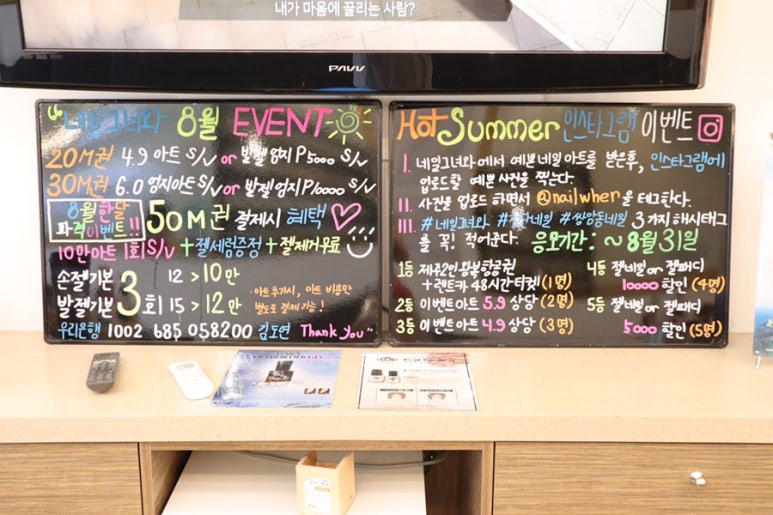 내가 마음에 끌리는 사람?
PAVV
네일그녀와 8월 EVENT
20M권 4.9 아트 S/v or 발젤 엄지 P 5000 S/v
30M권 6.0 엄지아트 S/v or 발젤 엄지 P 10000 S/v
8월 한달
파격이벤트!!
50M권 결제시 혜택
10만아트 1회 S/v +젤세럼증정 + 젤제거무료
손젤기본
발젤기본
3회
12 > 10만
15 > 12만
·아트추가시, 아트 비용만
별도로 결제 가능!
우리은행 1002 685 058200 김도연 Thank you
Hot Summer 인스타그램 이벤트
I. 네일그녀와에서 예쁜네일아트를 받은후, 인스타그램에
업로드할 예쁜 사진을 찍는다.
II. 사진을 업로드 하면서 @nailwher을 테그한다.
III. #네일그녀와 #네일 #쌍암동네일 3가지 해시태그
를 꼭! 적어준다. 응모기간: ~8월31일
1등 제주2인 왕복항공권
+렌트카 48시간 티켓 (1명)
2등 이벤트아트 5.9 상당 (2명)
3등 이벤트아트 4.9 상당 (3명)
4등 젤네일 or 젤패디
10000 할인 (4명)
5등 젤네일 or 젤패디
5000 할인 (5명)